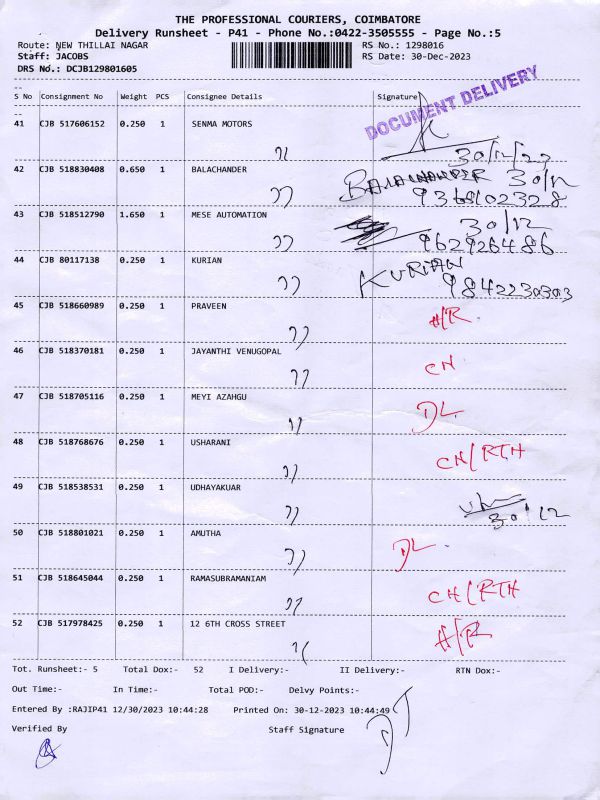 THE PROFESSIONAL COURIERS, COIMBATORE
Delivery Runsheet - P41 - Phone No.:0422-3505555 - Page No.:5
Route: NEW THILLAI NAGAR RS No.: 1298016
Staff: JACOBS RS Date: 30-Dec-2023
DRS No.: DCJB129801605
DOCUMENT DELIVERY
S No Consignment No Weight PCS Consignee Details Signature
41 CJB 517606152 0.250 1 SENMA MOTORS
30/12/23
42 CJB 518830408 0.650 1 BALACHANDER BALACHANDER 30/12
9369102328
43 CJB 518512790 1.650 1 MESE AUTOMATION 30/12
962926486
44 CJB 80117138 0.250 1 KURIAN KURIAN
9842230303
45 CJB 518660989 0.250 1 PRAVEEN H/R
46 CJB 518370181 0.250 1 JAYANTHI VENUGOPAL CH
47 CJB 518705116 0.250 1 MEYI AZAHGU DL
48 CJB 518768676 0.250 1 USHARANI CH/RTH
49 CJB 518538531 0.250 1 UDHAYAKUAR
30/12
50 CJB 518801021 0.250 1 AMUTHA DL.
51 CJB 518645044 0.250 1 RAMASUBRAMANIAM CH/RTH
52 CJB 517978425 0.250 1 12 6TH CROSS STREET H/R
Tot. Runsheet:- 5 Total Dox:- 52 I Delivery:- II Delivery:- RTN Dox:-
Out Time:- In Time:- Total POD:- Delvy Points:-
Entered By :RAJIP41 12/30/2023 10:44:28 Printed On: 30-12-2023 10:44:49
Verified By Staff Signature